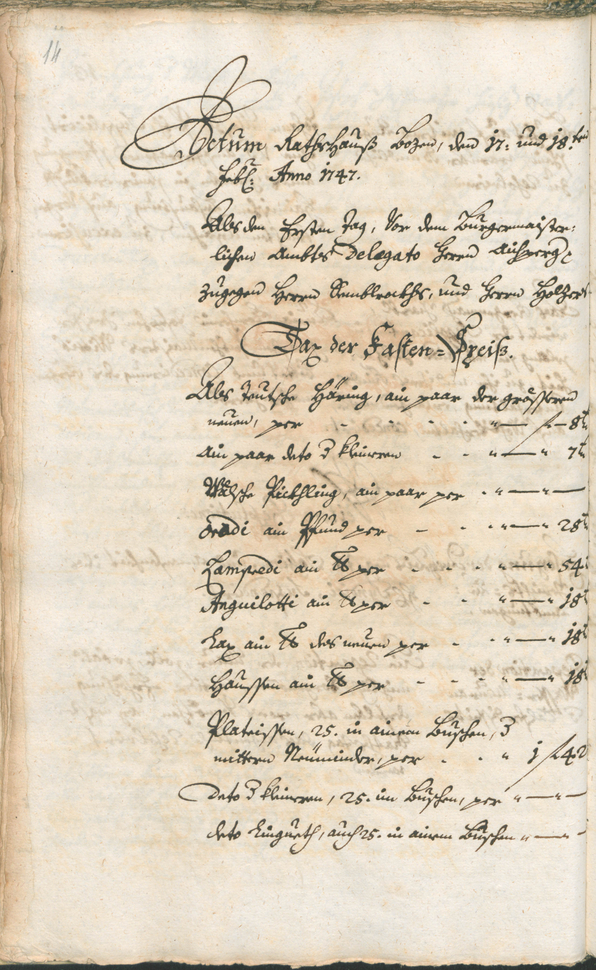 14
Actum Rathshauß Bozen, den 17: und 18ten
Febr: Anno 1747.
Als den Ersten Tag, Vor dem Burgermaister-
lichen Ambts Delegato Herrn
zugegen Herrn und Herrn Holzer
Tax der Fasten-Preiß.
Als Teutsche Häring, ain paar der grösseren
neuen, per - - - - " — f — 8
ain paar deto d kleineren - - " — " 7
Wälsche Pickhling, ain paar per - " — " —
ain Pfund per - - " — " 28
Lampredi ain lb per - - " — " 54
Anguilotti ain lb per - - " — " 18
Lax ain lb des neuen per - - " — " 18
Haussen ain lb per - - " — " 18
Plateissen, 25. in ainem Buschen, d
mittern per - - " 1 f 42
Deto d kleineren, 25. im Buschen, per " — " —
deto auch 25. in ainem Buschen " — " —